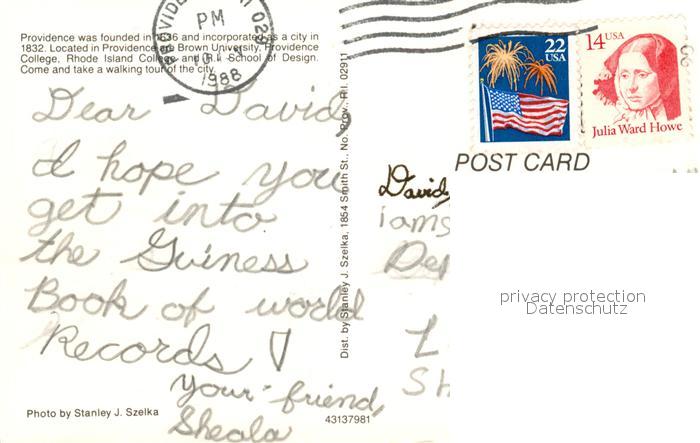 Providence was founded in 1636 and incorporated as a city in
1832. Located in Providence are Brown University, Providence
College, Rhode Island College and R.I. School of Design.
Come and take a walking tour of the city.
PM
1988
Dear David,
I hope you
get into
the Guiness
Book of world
Records!
Your friend,
Sheala
Photo by Stanley J. Szelka
43137981
Dist. by Stanley J. Szelka, 1854 Smith St., No. Prov., R.I. 02911
22
USA
14 USA
Julia Ward Howe
POST CARD
David
privacy protection
Datenschutz